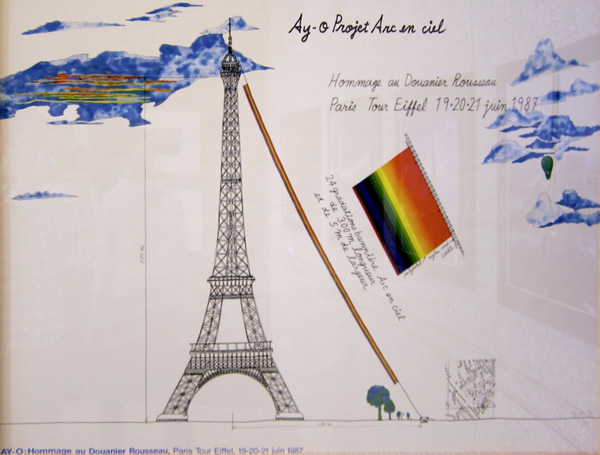 Ay-O Projet Arc en ciel
Hommage au Douanier Rousseau
Paris Tour Eiffel 19·20·21 juin 1987
24 gradations bannière Arc en ciel
de 300 m longueur
et de 5 m de largeur
AY-O: Hommage au Douanier Rousseau, Paris Tour Eiffel, 19-20-21 juin 1987